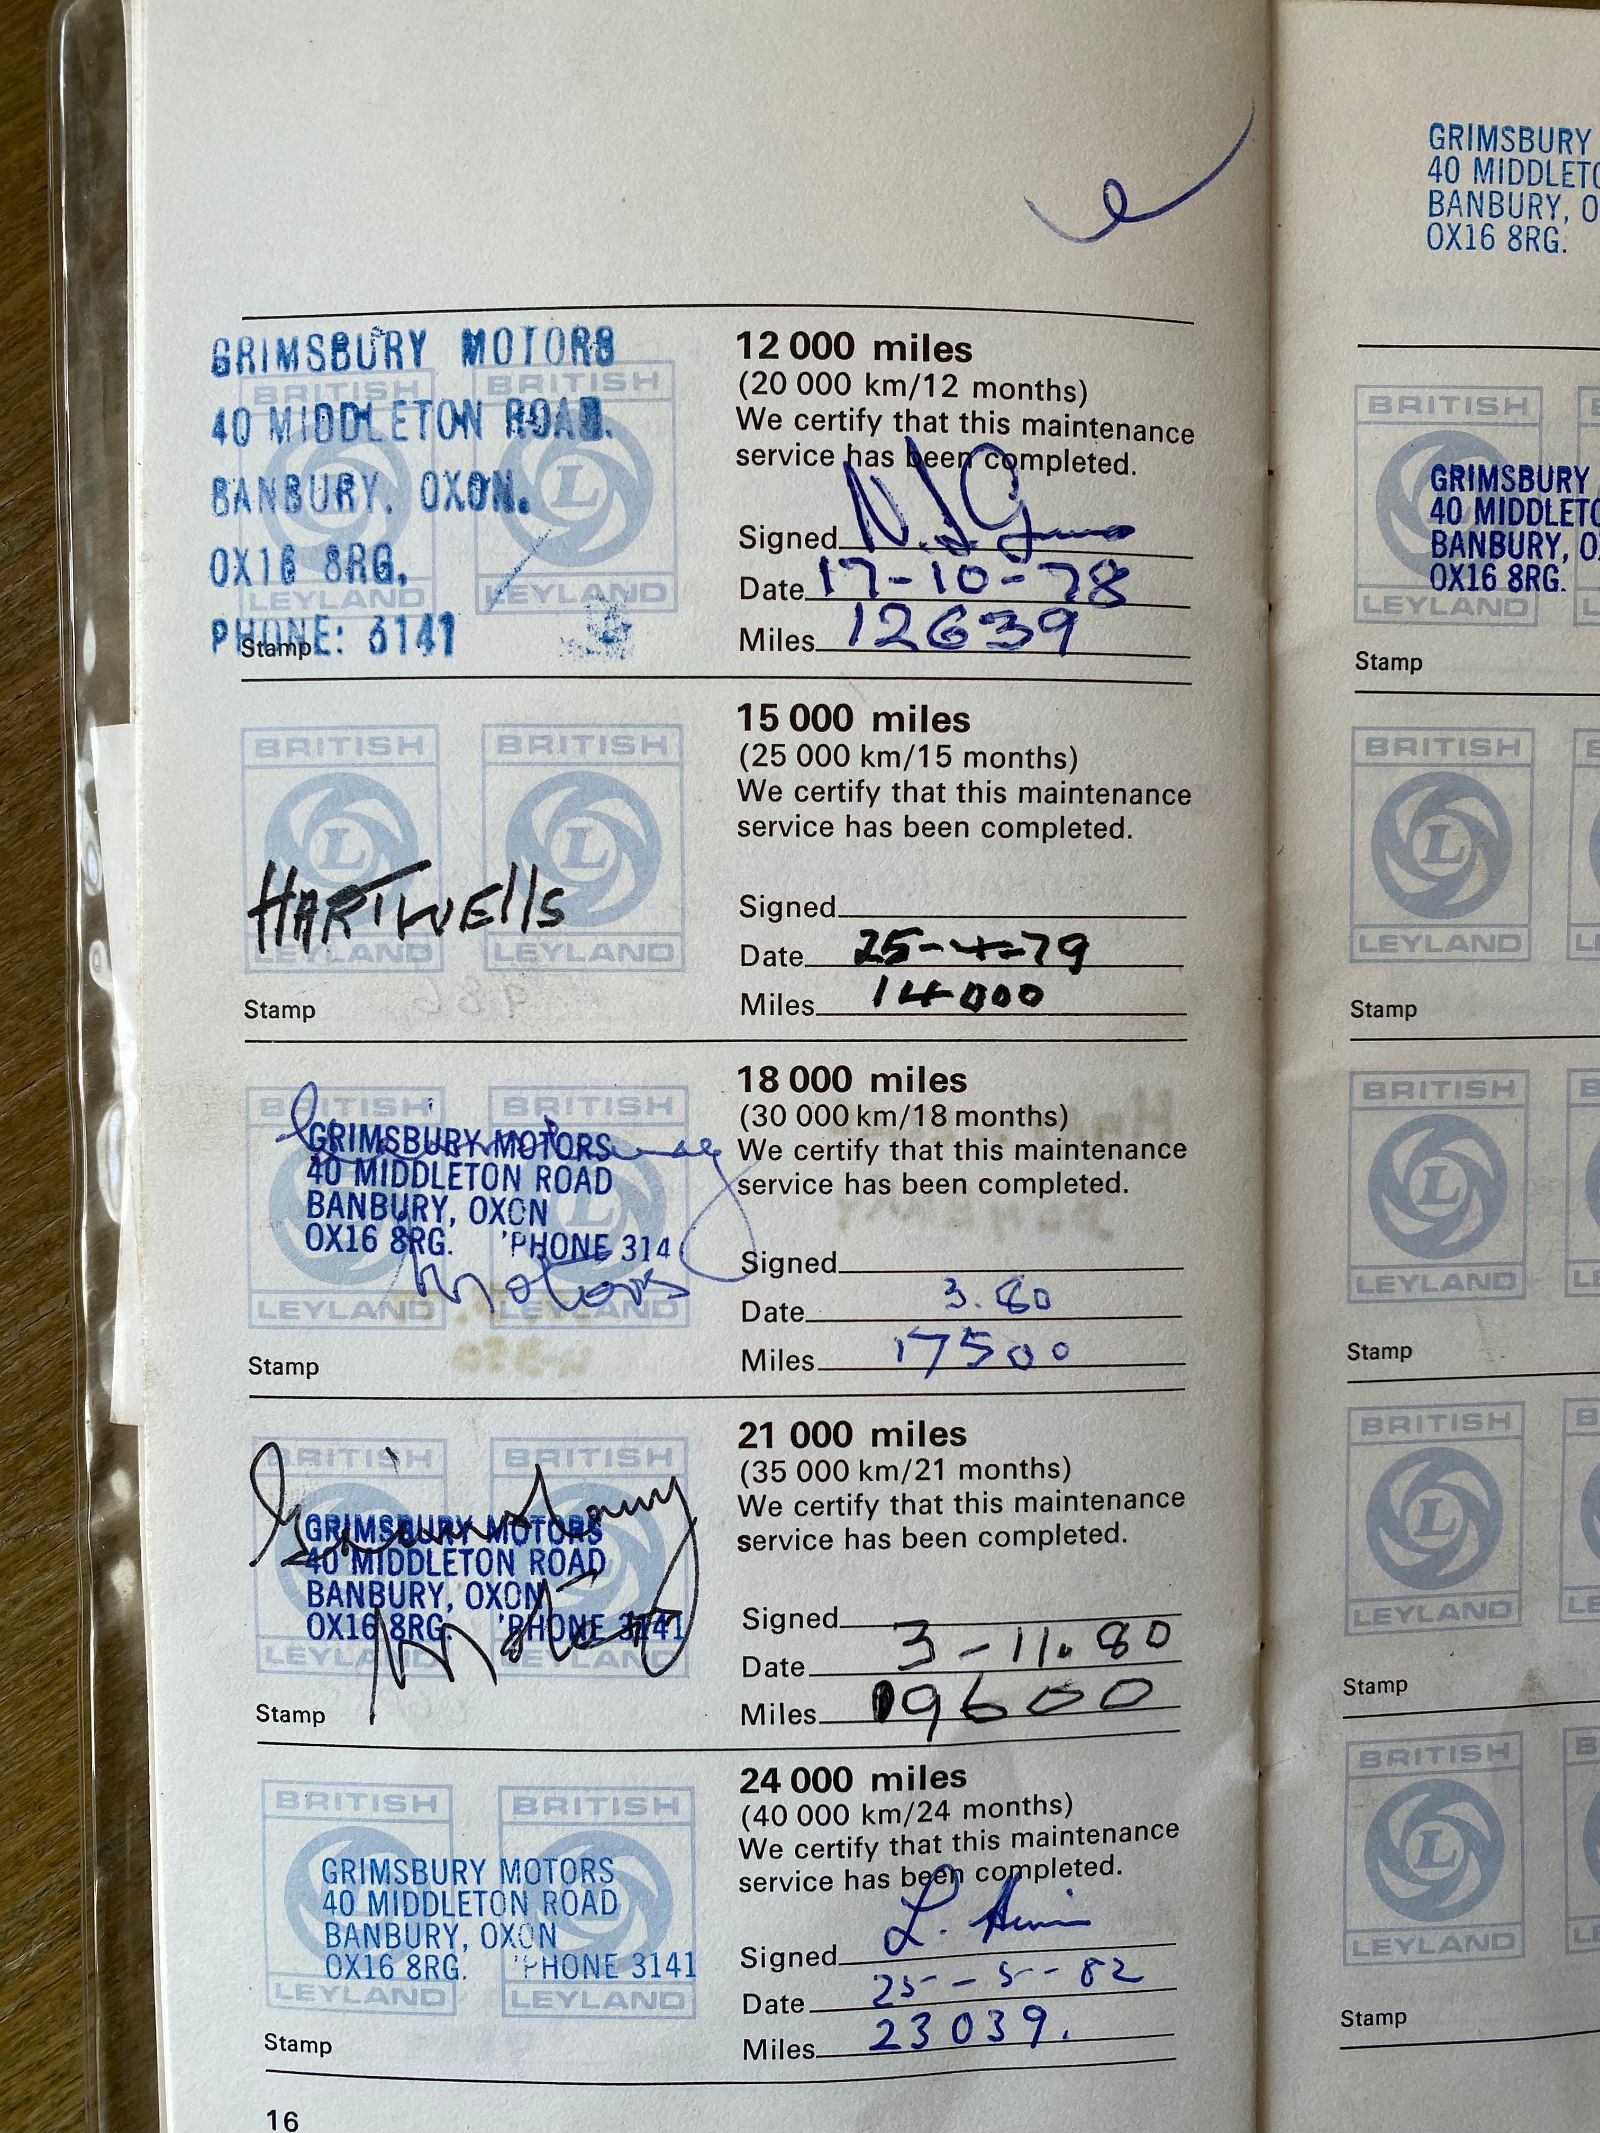 GRIMSBURY MOTORS
40 MIDDLETON ROAD.
BANBURY, OXON.
OX16 8RG.
PHONE: 3141
BRITISH BRITISH
L
LEYLAND LEYLAND
Stamp
12 000 miles
(20 000 km/12 months)
We certify that this maintenance
service has been completed.
Signed
Date 17-10-78
Miles 12639
BRITISH BRITISH
L L
HARTWElls
LEYLAND LEYLAND
Stamp
15 000 miles
(25 000 km/15 months)
We certify that this maintenance
service has been completed.
Signed
Date 25-4-79
Miles 14000
BRITISH BRITISH
GRIMSBURY MOTORS
40 MIDDLETON ROAD
BANBURY, OXON
OX16 8RG. 'PHONE 314
L
Motors
LEYLAND LEYLAND
Stamp
18 000 miles
(30 000 km/18 months)
We certify that this maintenance
service has been completed.
Signed
Date 3.80
Miles 17500
BRITISH BRITISH
GRIMSBURY MOTORS
40 MIDDLETON ROAD
BANBURY, OXON
OX16 8RG. 'PHONE 3141
LEYLAND LEYLAND
Stamp
21 000 miles
(35 000 km/21 months)
We certify that this maintenance
service has been completed.
Signed
Date 3-11.80
Miles 19600
BRITISH BRITISH
GRIMSBURY MOTORS
40 MIDDLETON ROAD
BANBURY, OXON
OX16 8RG. 'PHONE 3141
LEYLAND LEYLAND
Stamp
24 000 miles
(40 000 km/24 months)
We certify that this maintenance
service has been completed.
Signed L.
Date 25-5-82
Miles 23039.
16
GRIMSBURY
40 MIDDLETO
BANBURY, O
OX16 8RG.
BRITISH
GRIMSBURY
40 MIDDLETO
BANBURY, O
OX16 8RG.
LEYLAND
Stamp
BRITISH
L
LEYLAND
Stamp
BRITISH
L
LEYLAND
Stamp
BRITISH
L
LEYLAND
Stamp
BRITISH
L
LEYLAND
Stamp